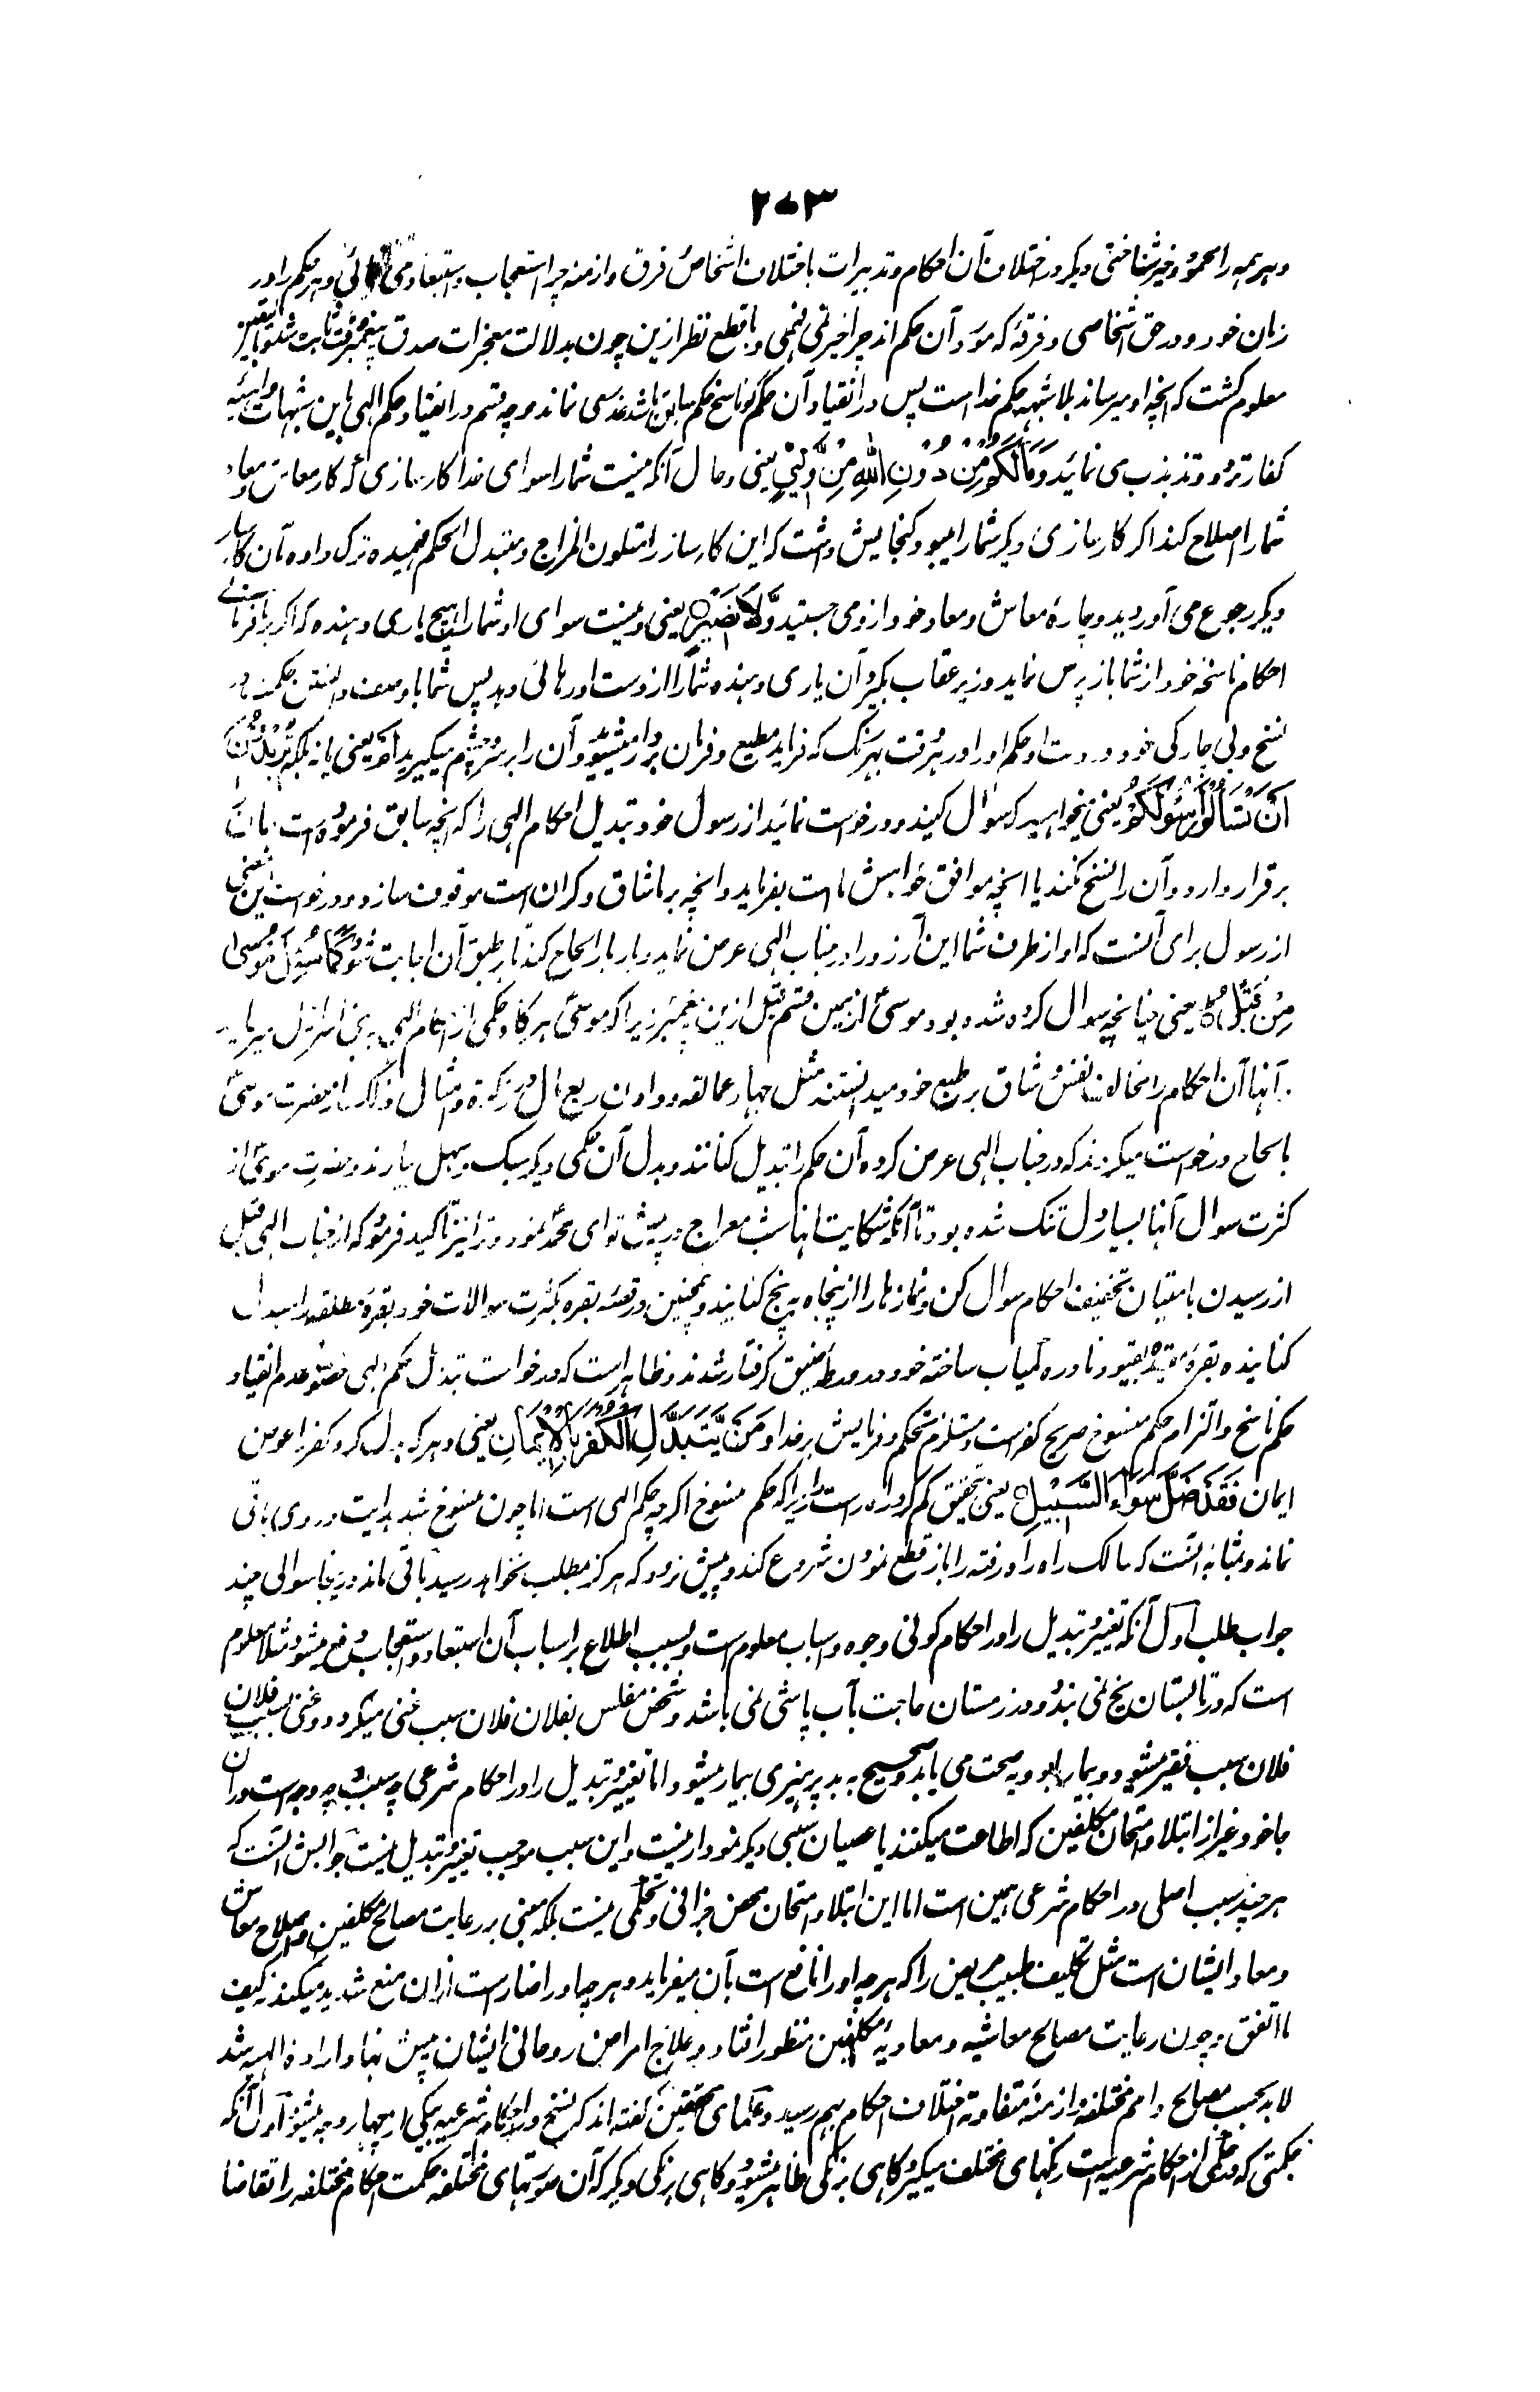 ۲۰۳
و همه را محمود و خیر شناختی دیگر در اختلاف آن احکام و تدبیرات باختلاف اشخاص و فرق و ازمنه چرا استعجاب و استبعاد می نمائی و هر حکم را در
زمان خود و در حق اشخاصی و فرقه که مورد آن حکم اند چرا خیر نمی فهمی و با قطع نظر ازین چون بدلالت معجزات صدق پیغمبر وقت ثابت شد و بالیقین
معلوم گشت که آنچه او میرساند بلا شبهه حکم خدا است پس در انقیاد آن حکم گو ناسخ حکم سابق باشد عذری نماند و چه قسم در انقیاد حکم الهی باین شبهات واهیه
کفار تردد و تذبذب می نمائید وَمَا لَكُمْ مِنْ دُونِ اللّٰهِ مِنْ وَّلِيٍّ یعنی و حال آنکه نیست شما را سوای خدا کارسازی که کار معاش و معاد
شما را اصلاح کند اگر کارسازی دیگر شما را میبود گنجایش داشت که این کارساز را متلون المزاج و متبدل الحکم فهمیده ترک داده بآن کارساز
دیگر رجوع می آوردید و چارهٔ معاش و معاد خود ازو می جستید وَّلَا نَصِيْرٍ یعنی و نیست سوای او شما را هیچ یاری دهنده که اگر بر نافرمانی
احکام ناسخه خود از شما باز پرس نماید و زیر عقاب بگیرد آن یاری دهنده شما را از دست او رهائی دهد پس شما با وصف دانستن حکمت در
نسخ و بی چارگی خود در دست او حکم او را در هر وقت بهر رنگ که فرماید مطیع و فرمان بردار میشوید و آن را بر سر و چشم میگیرید اَمْ یعنی یا نه بلکه تُرِيْدُوْنَ
اَنْ تَسْاَلُوْا رَسُوْلَكُمْ یعنی میخواهید که سوال کنید و درخواست نمائید از رسول خود تبدیل احکام الهی را که آنچه سابق فرموده است بما آن
برقرار دارد و آن را نسخ نکند یا آنچه موافق خواهش ما است بفرماید و آنچه بر ما شاق و گران است موقوف سازد و درخواست این معنی
از رسول برای آنست که او از طرف شما این آرزو را در جناب الهی عرض نماید و بار بار الحاح کند تا بر طبق آن اجابت شود كَمَا سُئِلَ مُوْسٰى
مِنْ قَبْلُ یعنی چنانچه سوال کرده شده بود موسیٰ از همین قسم قبل ازین پیغمبر زیرا که موسیٰ هر گاه حکمی از احکام الهی به بنی اسرائیل میرسانید
آنها آن احکام را مخالف نفس و شاق بر طبع خود میدانستند مثل جهاد عمالقه و دادن ربع مال در زکوة و امثال ذلک از حضرت موسیٰ
بالحاح درخواست میکردند که در جناب الهی عرض کرده آن حکم را تبدیل کنانند و بدل آن حکمی دیگر سبک و سهل بیارند و حضرت موسیٰ از
کثرت سوال آنها بسیار دل تنگ شده بود تا آنکه شکایت اینها شب معراج در پیش تو ای محمد نمود و ترا نیز تاکید فرمود که از جناب الهی قبل
از رسیدن بامتیان تخفیف احکام سوال کن و نمازها را از پنجاه به پنج کنانید و همچنین در قصه بقره بکثرت سوالات خود بقرهٔ مطلقه را مبدل
کنانیده بقرهٔ مقیده بقیود نادره کمیاب ساخته خود در ورطه ضیق گرفتار شدند و ظاهر است که درخواست تبدل حکم الهی متضمن عدم انقیاد
حکم ناسخ و التزام حکم منسوخ صریح کفر است و مستلزم تحکم و فرمایش بر خدا وَمَنْ يَّتَبَدَّلِ الْكُفْرَ بِالْاِيْمَانِ یعنی و هر که بدل کرد کفر را عوض
ایمان فَقَدْ ضَلَّ سَوَاءَ السَّبِيْلِ یعنی پس تحقیق گم کرد راه راست را زیرا که حکم منسوخ اگرچه حکم الهی است اما چون منسوخ شد هدایت در وی باقی
نماند و بمثابه آنست که سالک راه راه رفته را باز قطع نمودن شروع کند و پیش نرود که هرگز بمطلب نخواهد رسید باقی ماند درینجا سوالی چند
جواب طلب اول آنکه تغییر و تبدیل را در احکام کونی وجوه و اسباب معلوم است و بسبب اطلاع بر اسباب آن استبعاد و استعجاب دفع میشود مثلا معلوم
است که در تابستان یخ نمی بندد و در زمستان حاجت آب پاشی نمی باشد و شخص مفلس بفلان فلان سبب غنی میگردد و غنی بسبب فلان
فلان سبب فقیر میشود و بیمار بادویه صحت می یابد و صحیح به بد پرهیزی بیمار میشود اما تغییر و تبدیل را در احکام شرعی چه سبب و چه وجه است در آن
جا خود غیر از ابتلا و امتحان مکلفین که اطاعت میکنند یا عصیان سببی دیگر نمودار نیست و این سبب موجب تغییر و تبدیل نیست جوابش آنست که
هر چند سبب اصلی در احکام شرعی همین است اما این ابتلا و امتحان محض جزافی و تحکمی نیست بلکه مبنی بر رعایت مصالح مکلفین و اصلاح معاش
و معاد ایشان است مثل تکلیف طبیب مریض را که هر چه او را نافع است بآن میفرماید و هر چه او را ضار است از آن منع شدید میکند نه کیف
ما اتفق و چون رعایت مصالح معاشیه و معادیهٔ مکلفین منظور افتاد و علاج امراض روحانی ایشان پیش نهاد ارادهٔ الهیه شد
لا بد بحسب مصالح و امم مختلفه و ازمنهٔ متفاوته اختلاف احکام بهم رسید و علمای محققین گفته اند که نسخ در احکام شرعیه بیکی از چهار وجه میشود اول آنکه
حکمتی که در حکمی از احکام شرعیه است رنگهای مختلف میگیرد گاهی برنگی ظاهر میشود و گاهی برنگی دیگر که آن صورتهای مختلفه حکمت احکام مختلفه را تقاضا